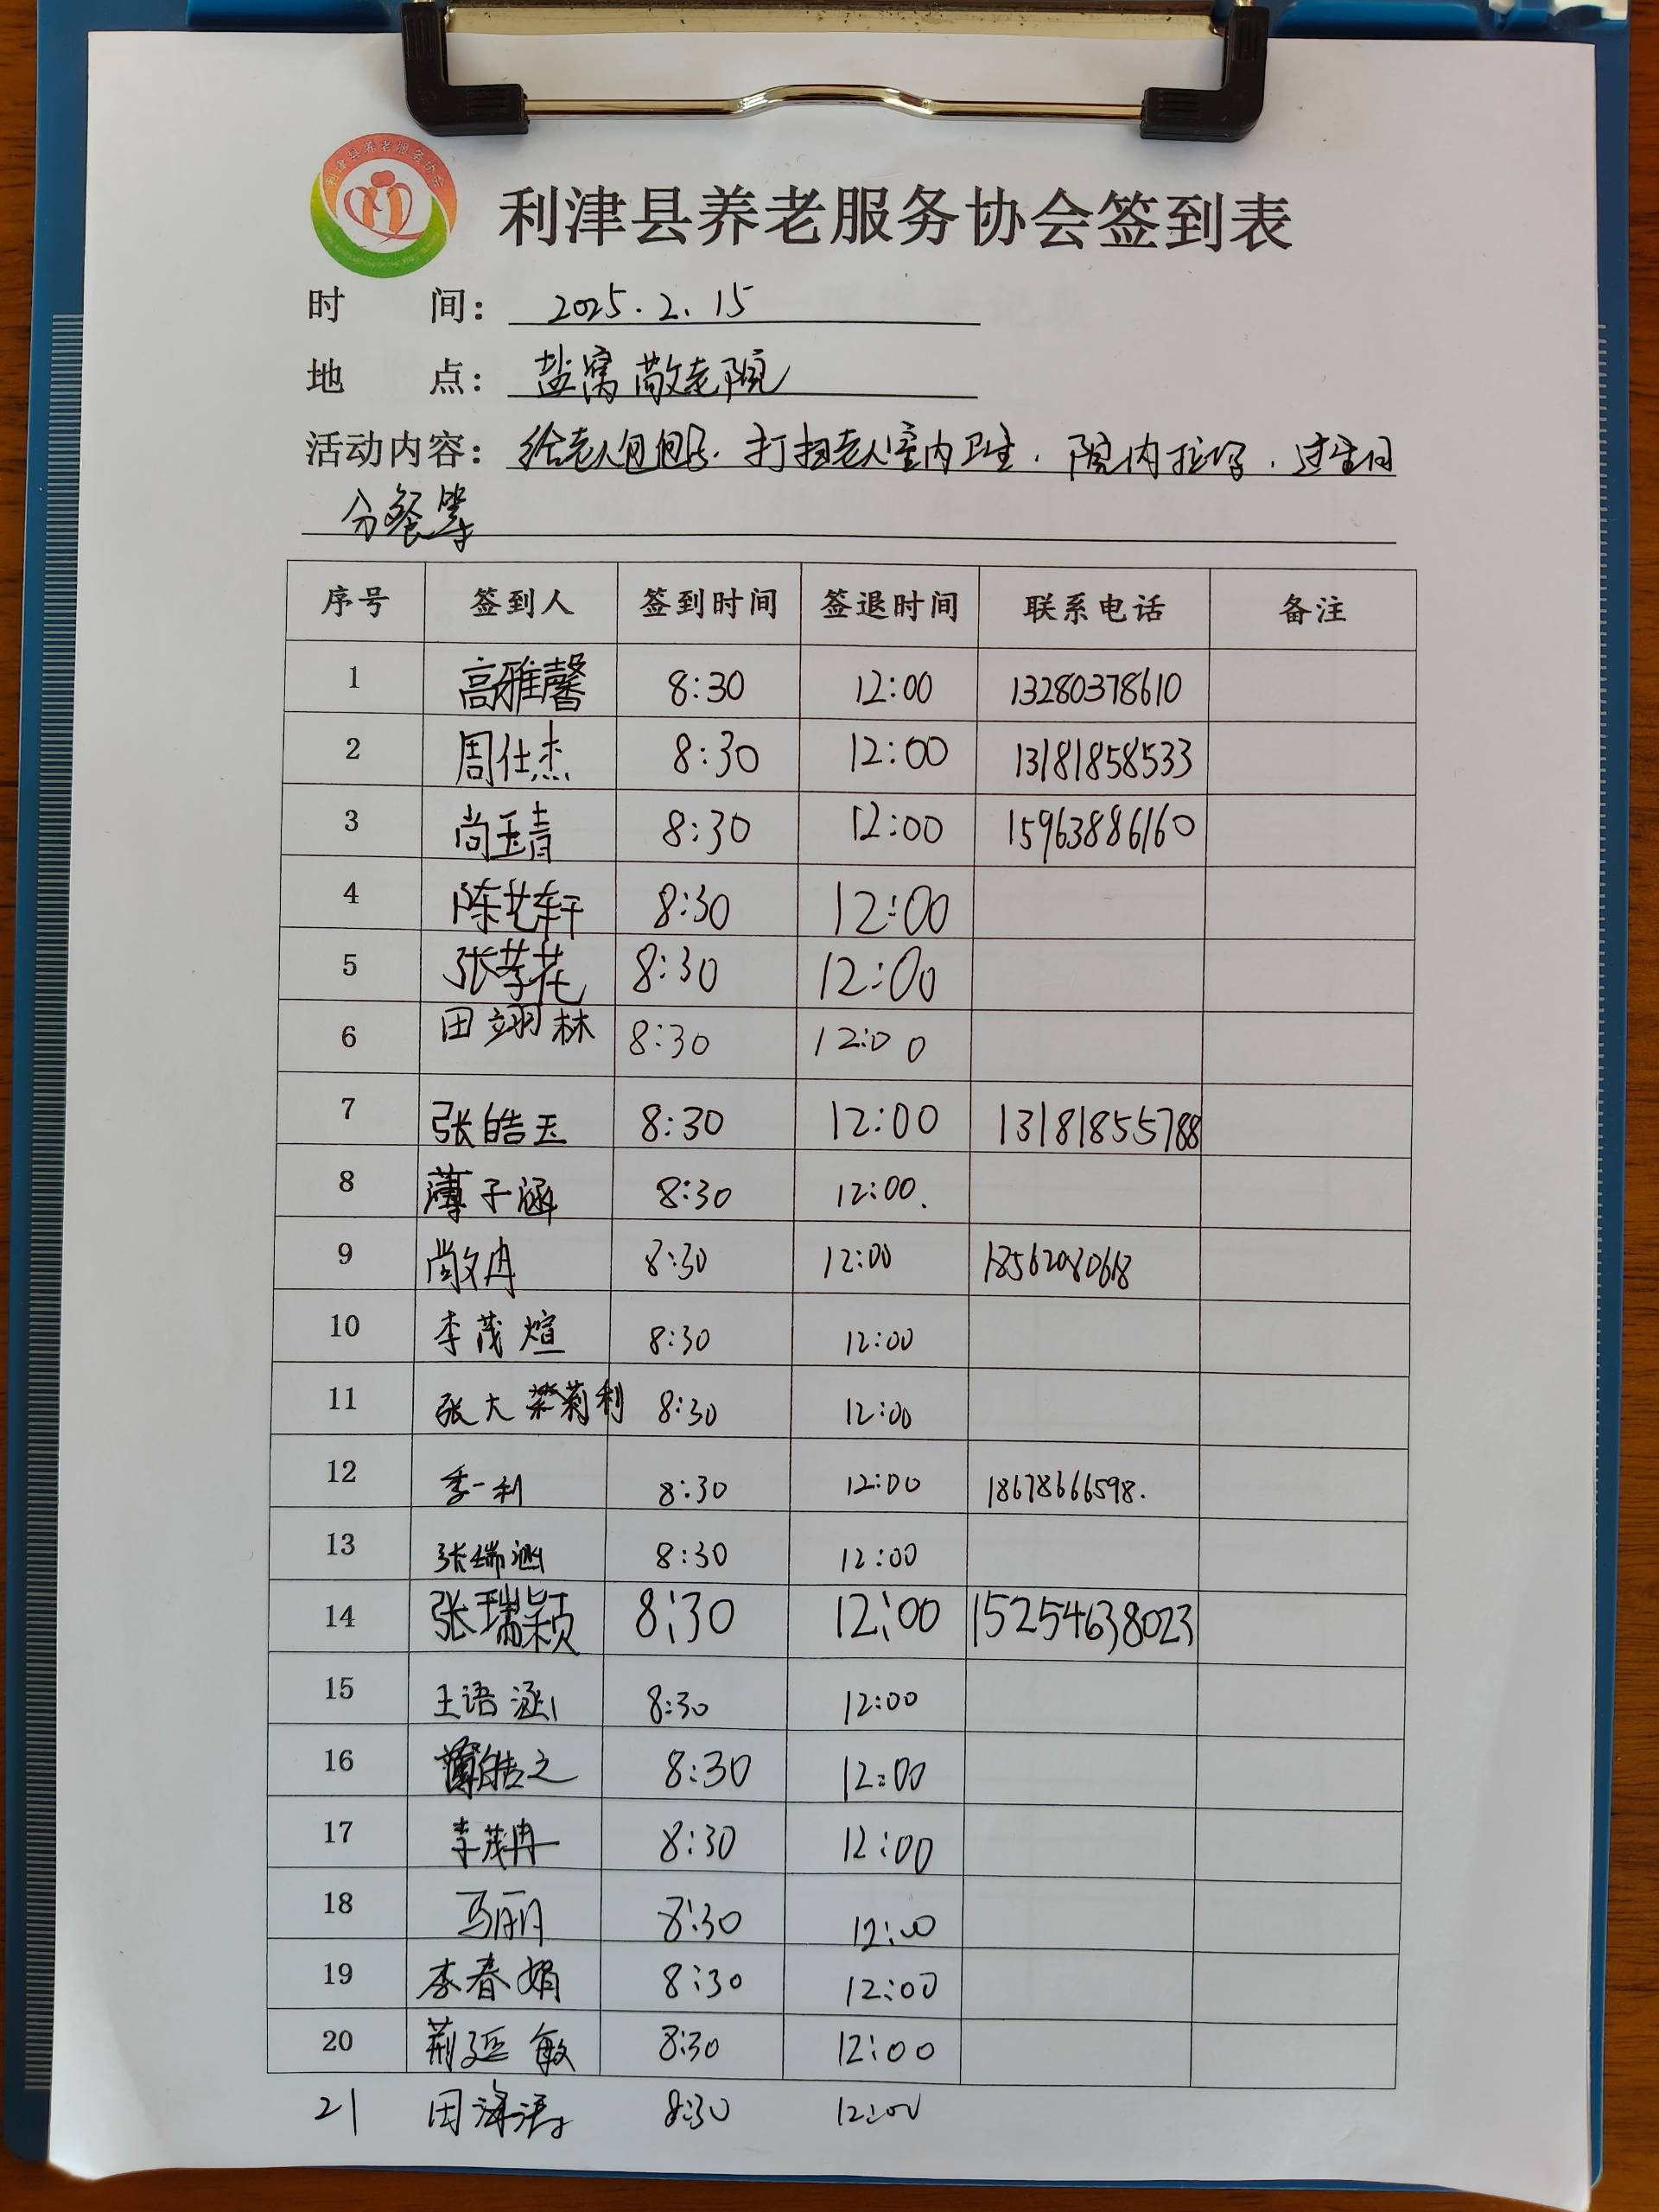 利津县养老服务协会
利津县养老服务协会签到表
时 间: 2025.2.15
地 点: 盐窝敬老院
活动内容: 给老人包包子. 打扫老人室内卫生. 院内 过生日
分餐等
序号 签到人 签到时间 签退时间 联系电话 备注
1 高雅馨 8:30 12:00 13280378610
2 周仕杰 8:30 12:00 13181858533
3 尚玉青 8:30 12:00 15963886160
4 陈艺轩 8:30 12:00
5 张芸花 8:30 12:00
6 田翊林 8:30 12:00
7 张皓玉 8:30 12:00 13181855788
8 薄子涵 8:30 12:00.
9 尚文冉 8:30 12:00 18562080618
10 李茂煊 8:30 12:00
11 张大 莉利 8:30 12:00
12 季一利 8:30 12:00 18678666598.
13 张瑞涵 8:30 12:00
14 张瑞颖 8:30 12:00 15254638023
15 王语涵 8:30 12:00
16 薄皓之 8:30 12:00
17 李茂冉 8:30 12:00
18 马丽 8:30 12:00
19 李春娟 8:30 12:00
20 荆延敏 8:30 12:00
21 田海涛 8:30 12:00